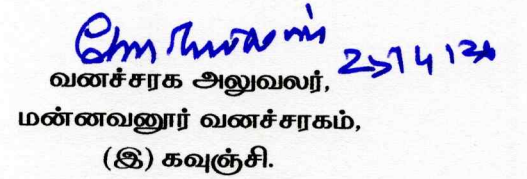 வனச்சரக அலுவலர்,
மன்னவனூர் வனச்சரகம்,
(இ) கவுஞ்சி.